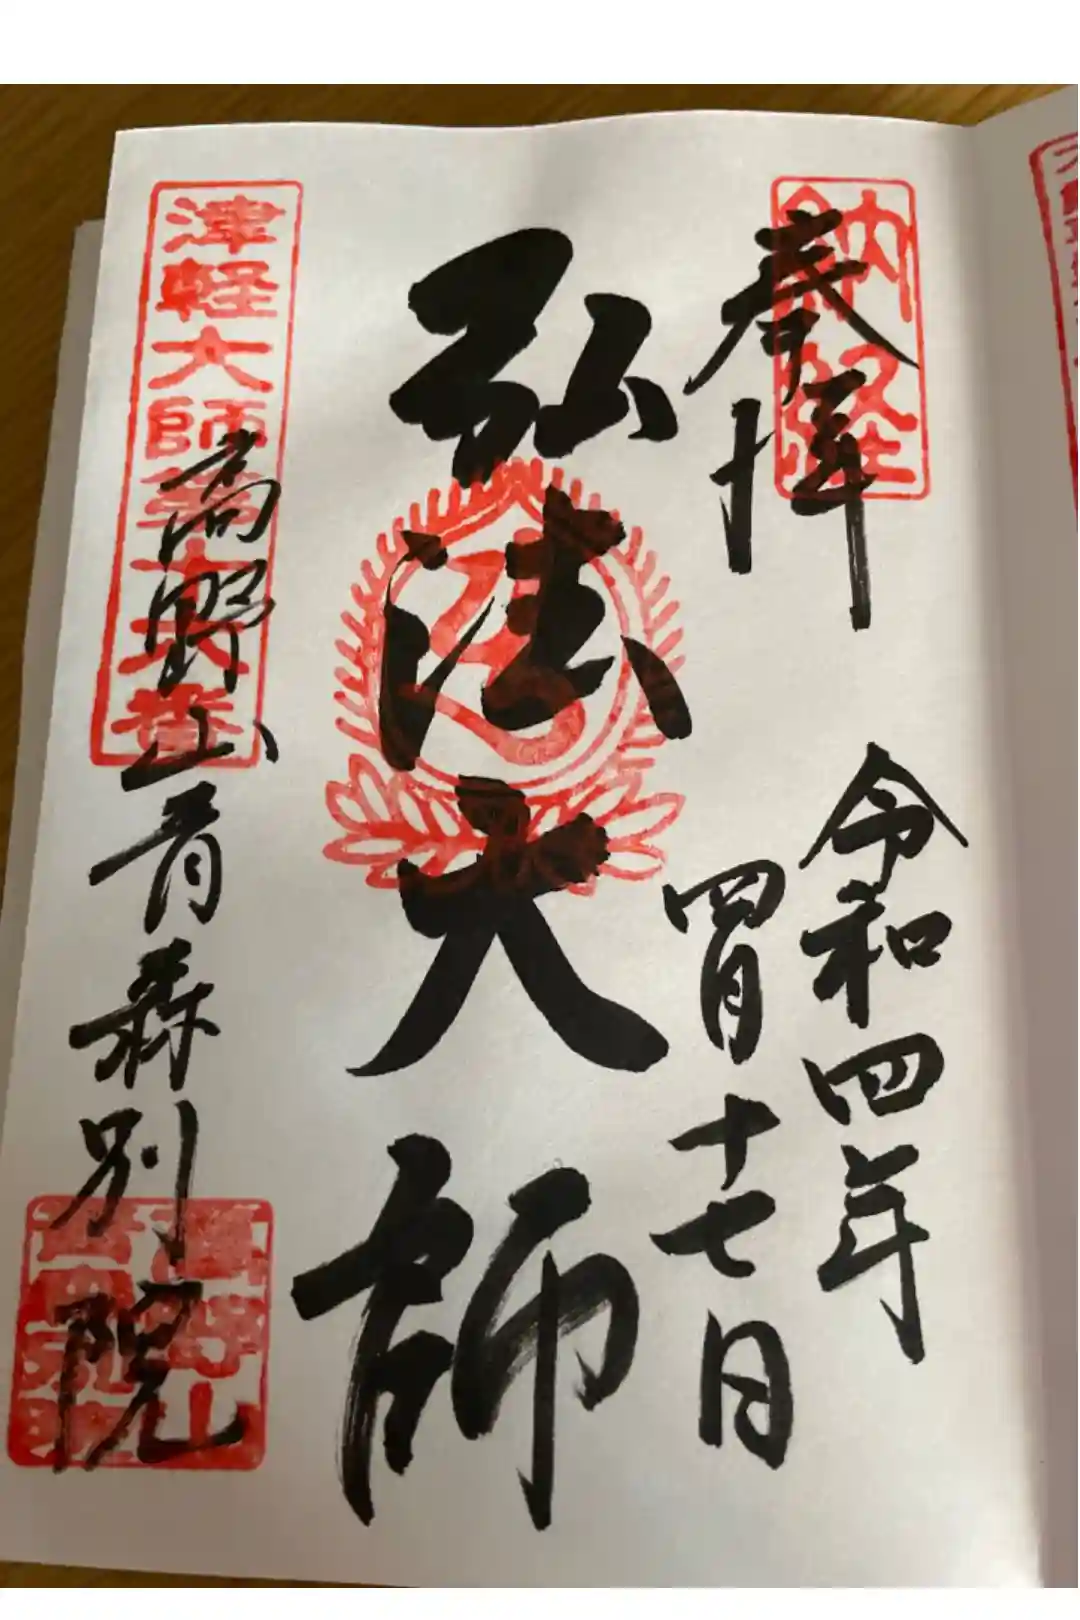 納経
奉拝
令和四年
四月十七日
弘法大師
津軽大師第
番
高野山青森別院
高野山